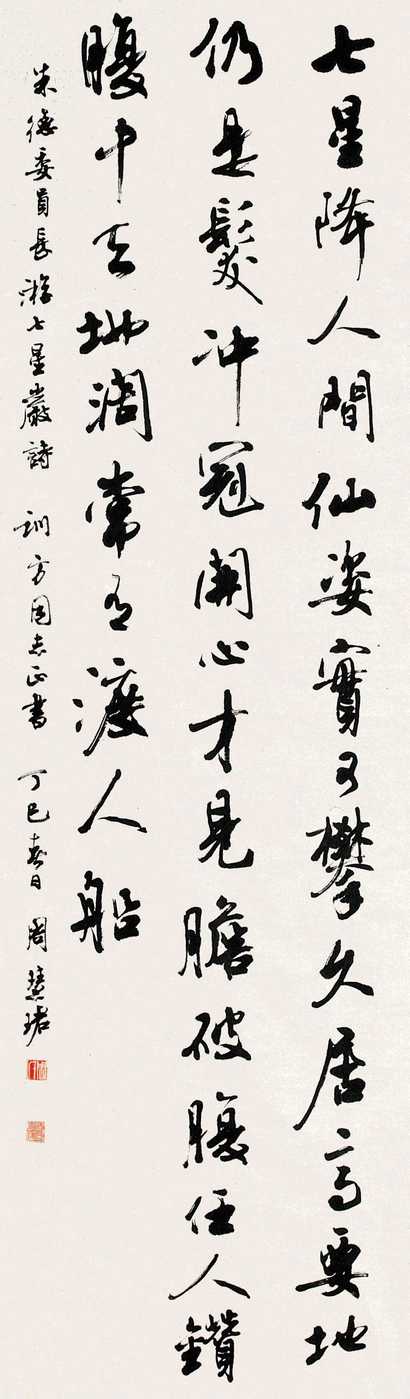 七星降人間仙姿實可攀久居高要地
仍是髮冲冠開心才見膽破腹任人鑽
腹中天地闊常有渡人船
朱德委員長游七星巖詩 訓方同志正書 丁巳春日 周慧珺